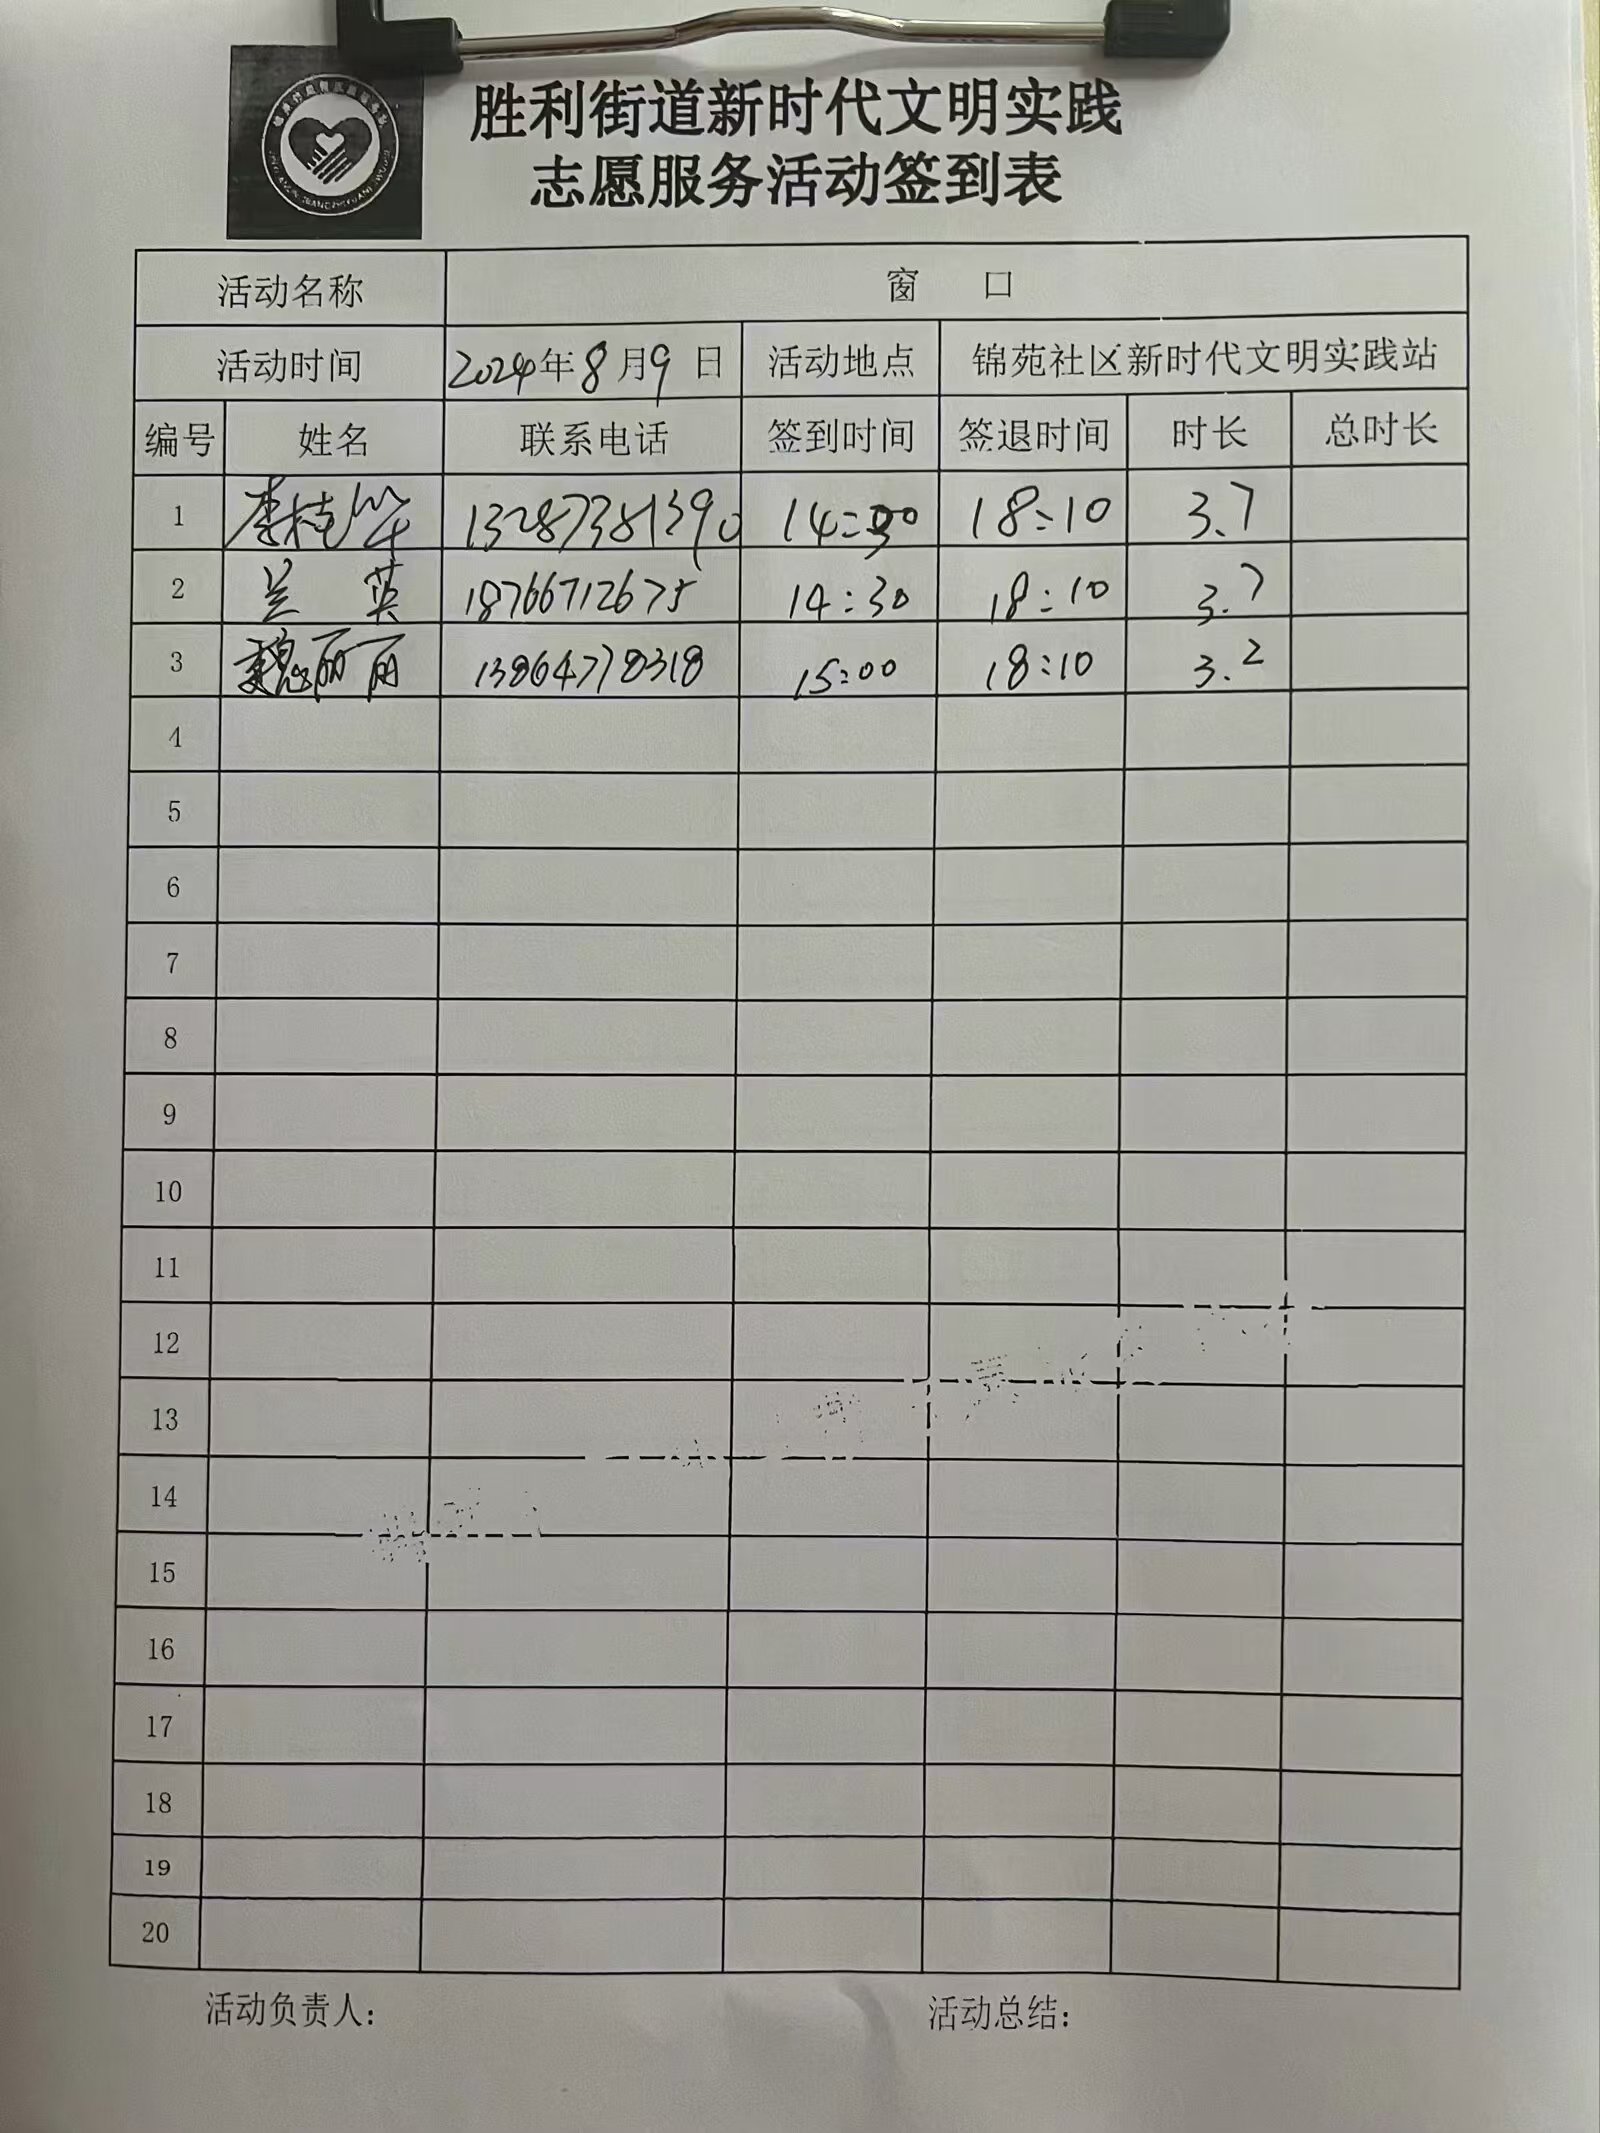 胜利街道新时代文明实践
志愿服务活动签到表
活动名称 窗 口
活动时间 2024年8月9日 活动地点 锦苑社区新时代文明实践站
编号 姓名 联系电话 签到时间 签退时间 时长 总时长
1 李桂华 13287381390 14:30 18:10 3.7
2 兰英 18766712675 14:30 18:10 3.7
3 魏丽丽 13864778318 15:00 18:10 3.2
4
5
6
7
8
9
10
11
12
13
14
15
16
17
18
19
20
活动负责人: 活动总结: